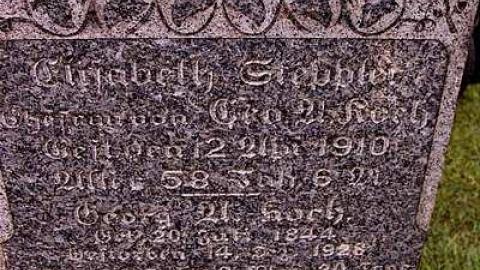 Elisabeth Steppler
Ehefrau von Geo. A. Koch
Gest. den 12 1910
Alt. 58 Jah. 6 M
Georg A. Koch.
Geb. 20 Juli 1844
Gestorben 14. 1928